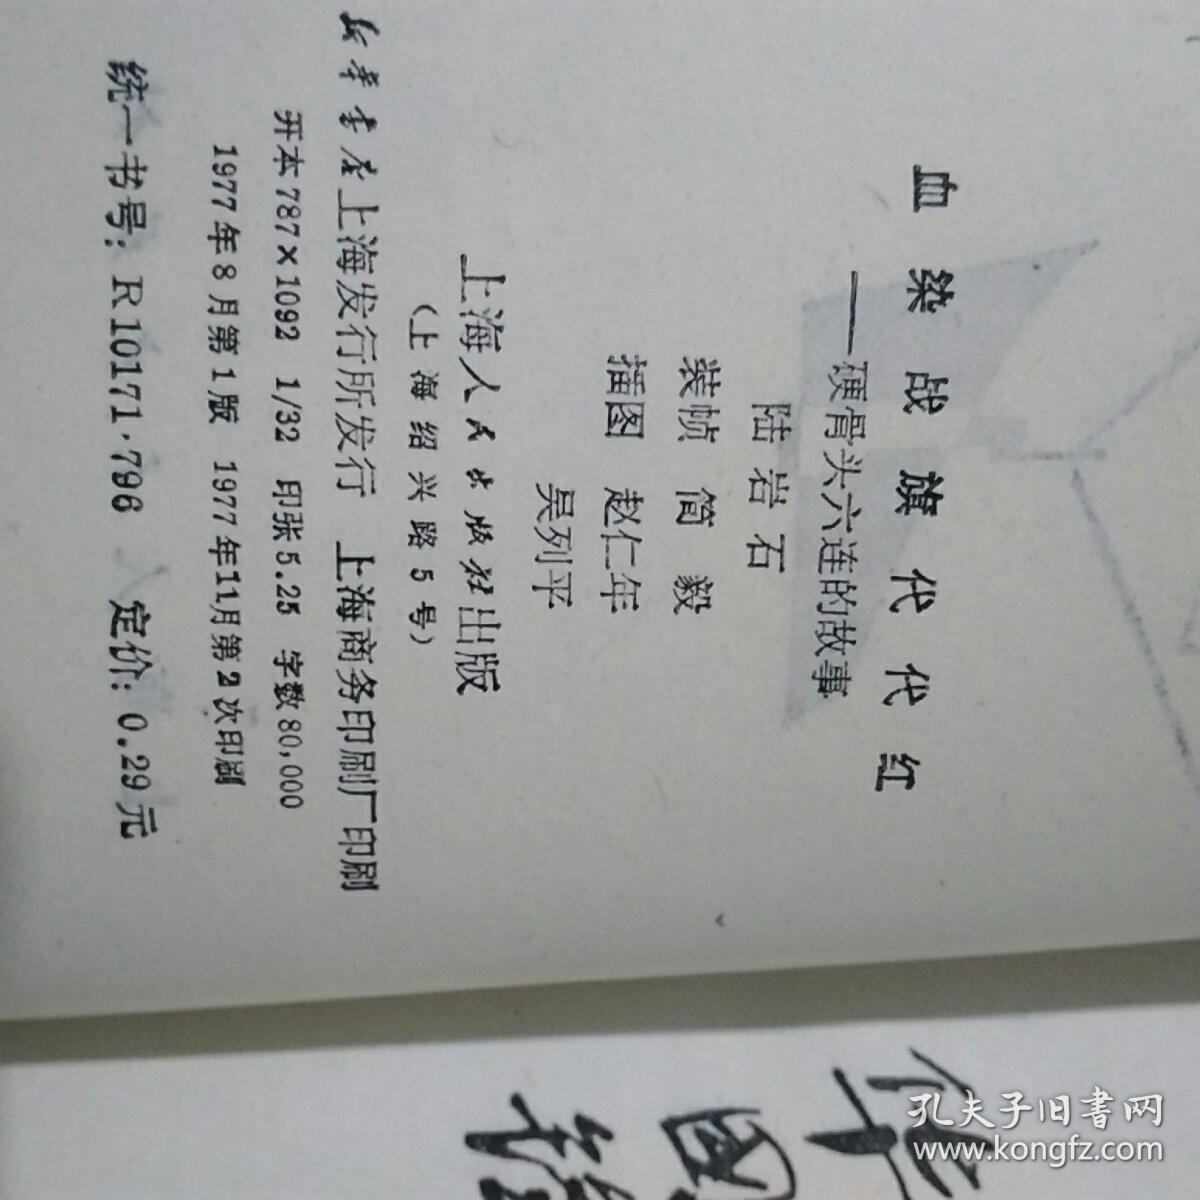 血染战旗代代红
——硬骨头六连的故事
陆岩石
装帧 简毅
插图 赵仁年
吴列平
上海人民出版社出版
(上海绍兴路5号)
新华书店上海发行所发行 上海商务印刷厂印刷
开本787×1092 1/32 印张5.25 字数80,000
1977年8月第1版 1977年11月第2次印刷
统一书号:R10171·796 定价:0.29元
孔夫子旧書网
www.kongfz.com